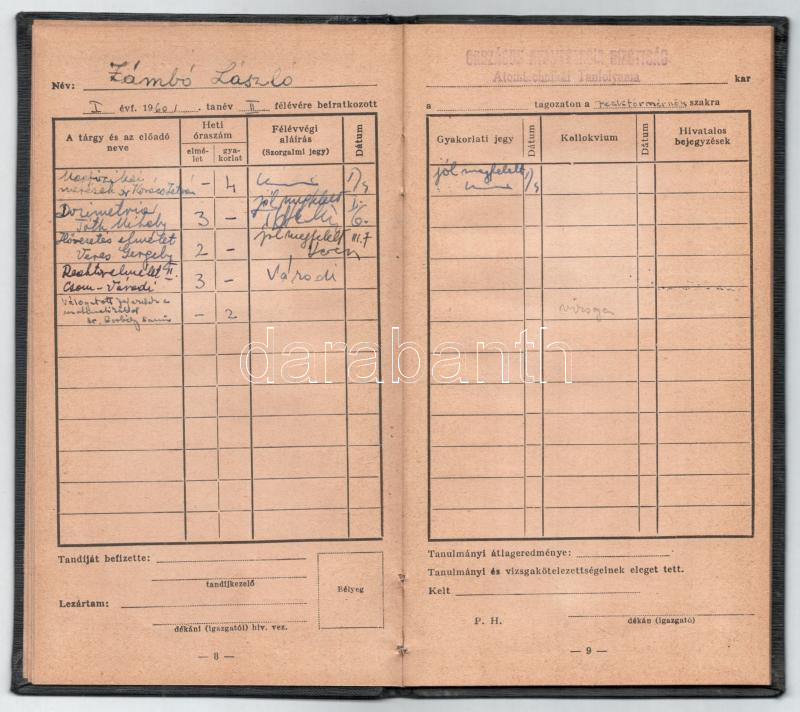 Név: Zámbó László
I évf. 1960/1 tanév II félévére beiratkozott
A tárgy és az előadó neve
Heti óraszám
elmélet
gyakorlat
Félévvégi aláírás
(Szorgalmi jegy)
Dátum
Magfizikai
mérések dr Kovács István
– 4
Dozimetria
Tóth Mihály
3 –
jól megfelelt
Hővezetés elmélet
Veres Gergely
2 –
jól megfelelt
III. 7
Reaktorelmélet II.
Csom – Váradi
3 –
Váradi
– 2
Tandíját befizette:
tandíjkezelő
Lezártam:
dékáni (igazgatói) hiv. vez.
Bélyeg
— 8 —
ORSZÁGOS ATOMENERGIA BIZOTTSÁG
Atomtechnikai Tanfolyama
kar
a tagozaton a reaktormérnök szakra
Gyakorlati jegy
Dátum
Kollokvium
Dátum
Hivatalos bejegyzések
jól megfelelt
vizsga
Tanulmányi átlageredménye:
Tanulmányi és vizsgakötelezettségeinek eleget tett.
Kelt
P. H.
dékán (igazgató)
— 9 —
darabanth